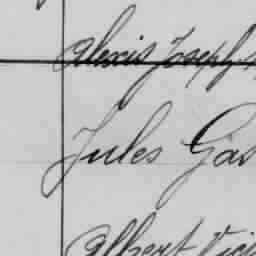 Alexis Joseph
Jules Gas
Albert Vic